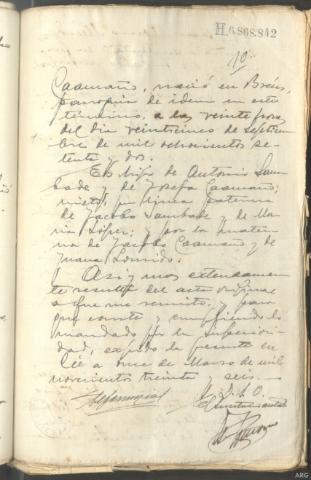 H,6868,842
10.
Caamaño, nació en Breis,
parroquia de idem en este
término, a las veinte horas
del dia veintinco de Septiem
bre de mil ochocientos se
tenta y dos.
Es hijo de Antonio Sam
bade y de Josefa Caamaño;
nieto, por línea paterna
de Jacobo Sambade y de Ma
ría López; y por la mater
na de Jacobo Caamaño y de
Juana
Asi y mas extensamen
te resulta del acta original
a que me remito. Y para
que conste y cumpliendo lo
mandado por la superiori
dad, expido la presente en
a once de Marzo de mil
novecientos treinta y seis.
ARG